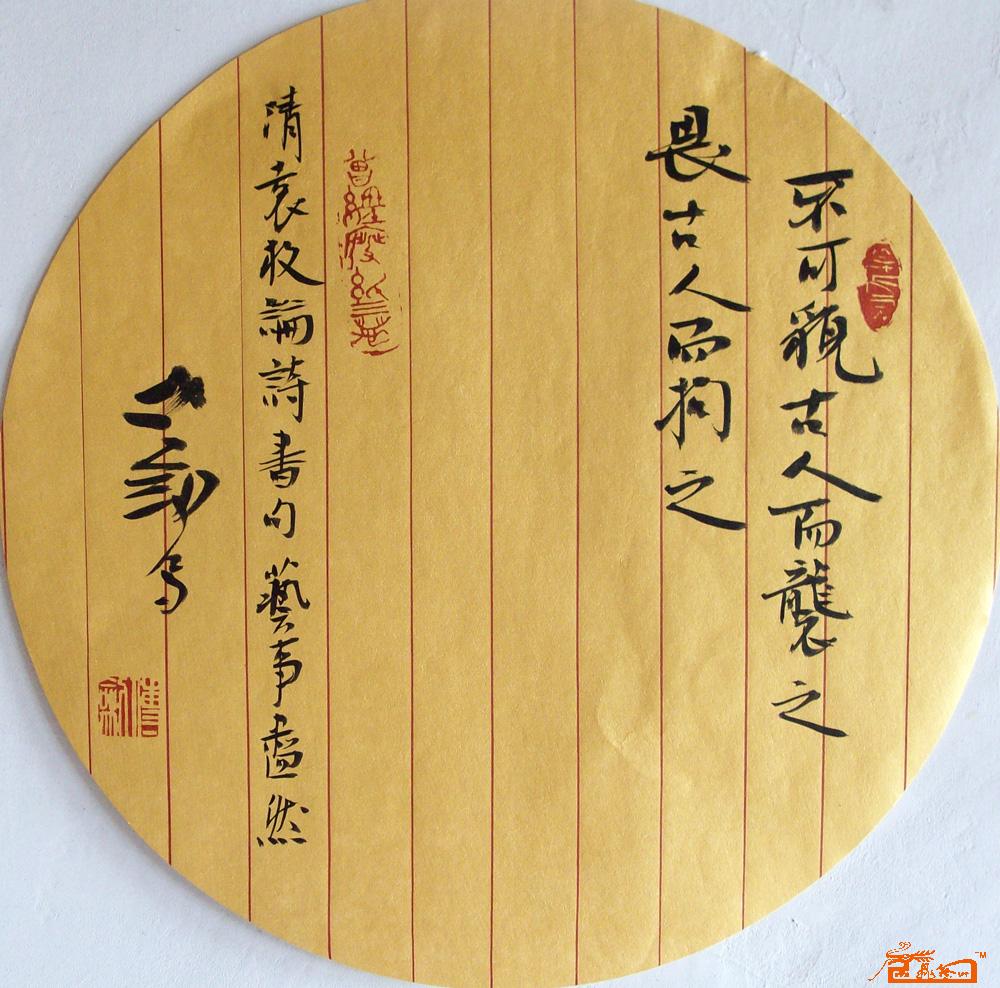 不可貌古人而襲之
畏古人而拘之
清袁枚論詩書句藝事盡然